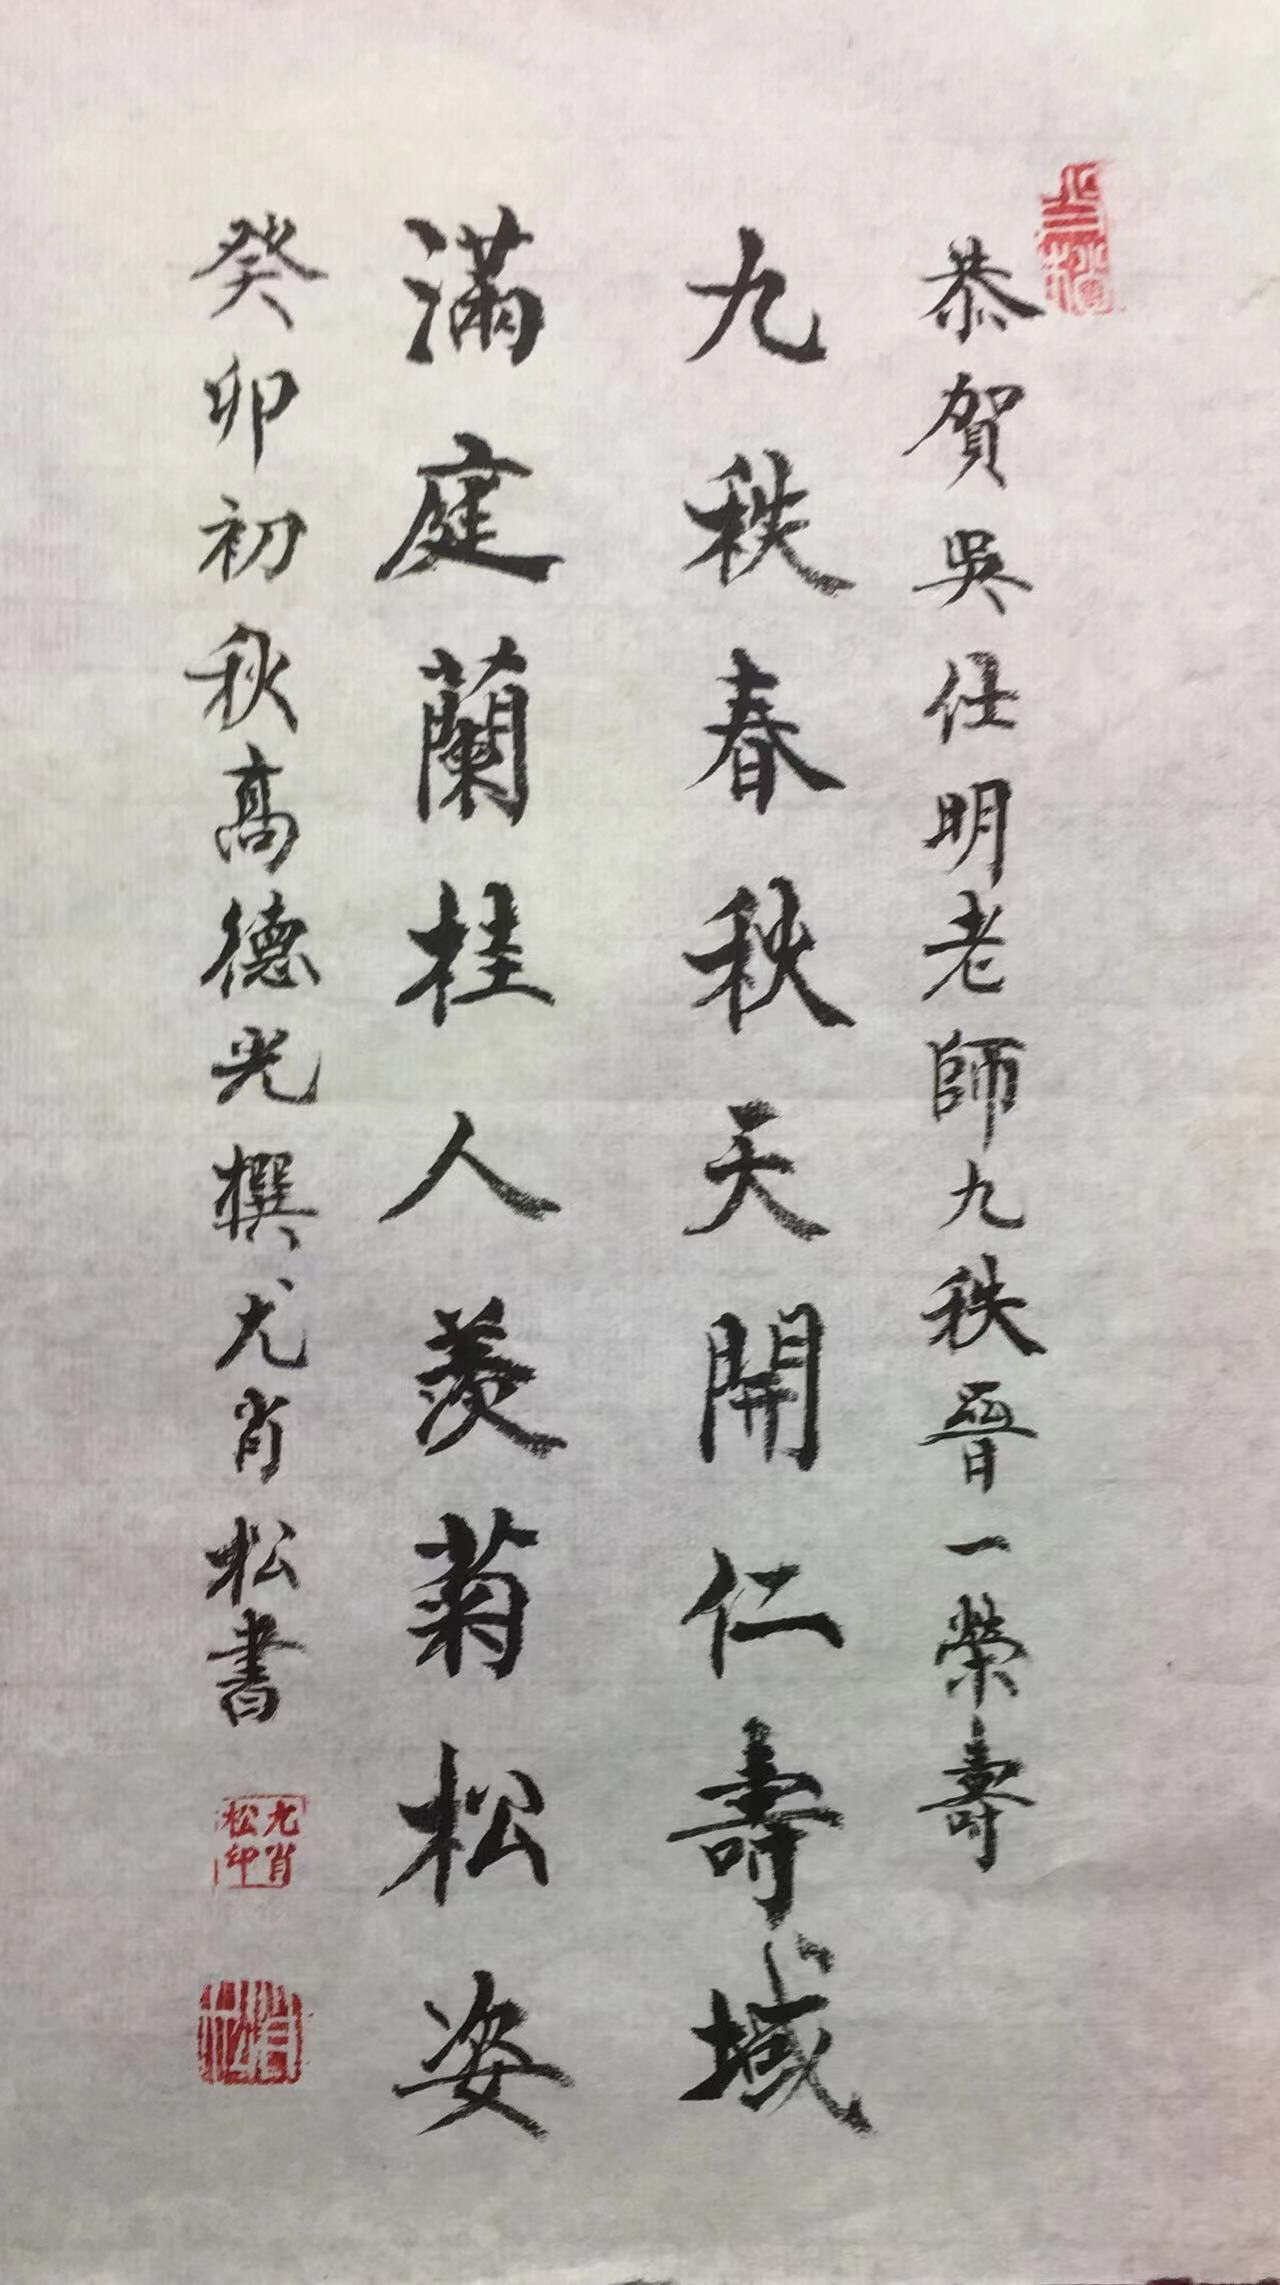 恭賀吳仕明老師九秩晉一榮壽
九秩春秋天開仁壽域
滿庭蘭桂人羨菊松姿
癸卯初秋高德光撰尤肖松書
尤肖松印